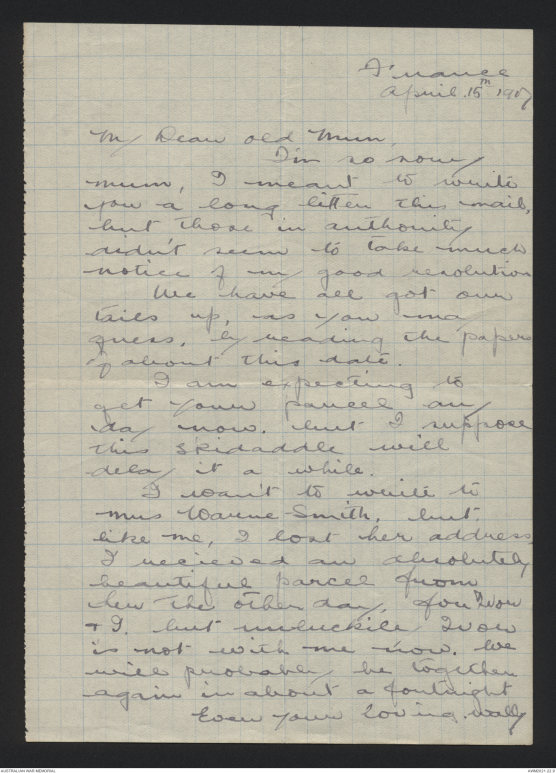 France
April. 15th 1917
My Dear old Mum,
I'm so sorry
mum, I meant to write
you a long letter this mail,
but those in authority
didn't seem to take much
notice of my good resolution
We have all got our
tails up, as you may
guess, by reading the papers
of about this date.
I am expecting to
get your parcel any
day now. but I suppose
this skidaddle will
delay it a while.
I want to write to
Mrs Warne-Smith, but
like me, I lost her address
I recieved an absolutely
beautiful parcel from
her the other day, for Ivor
+ I. but unluckile Ivor
is not with me now. We
will probably be together
again in about a fortnight
Ever your loving Wally
AUSTRALIAN WAR MEMORIAL